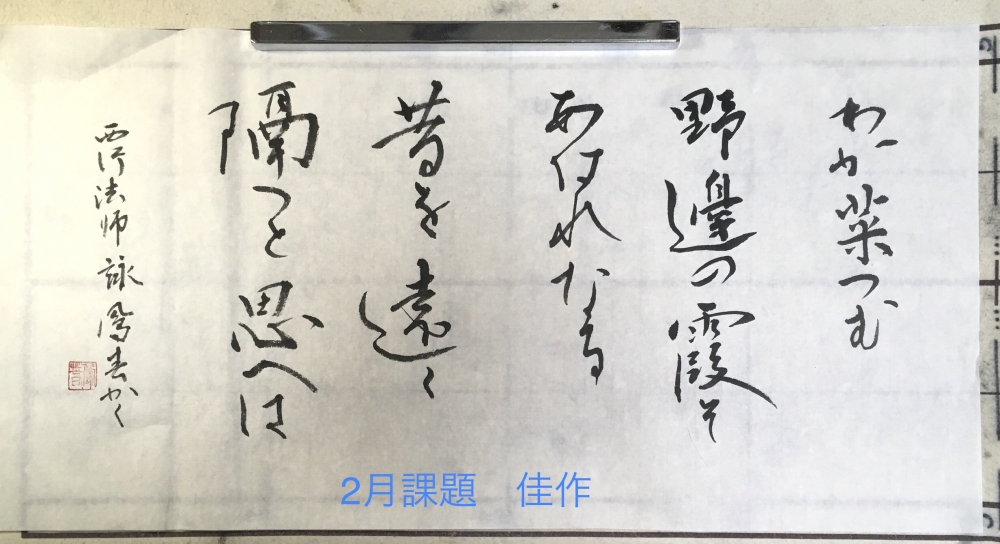 わか菜つむ
野邊の霞そ
あはれなる
昔を遠く
隔つと思へは
西行法師 詠 鳳春かく
2月課題　佳作